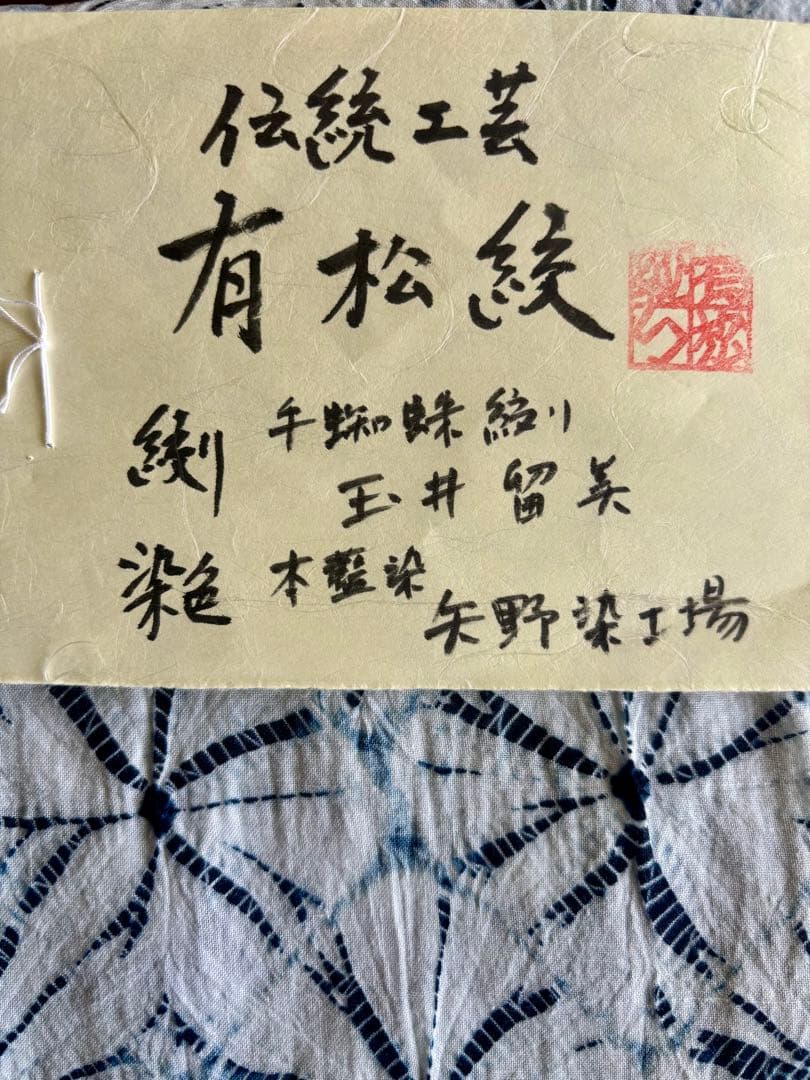 伝統工芸
有松絞
絞り 手蜘蛛絞り
玉井留美
染色 本藍染
矢野染工場